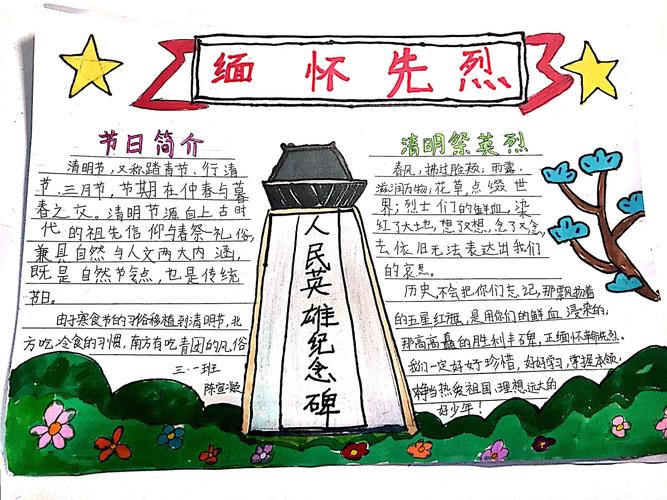 缅怀先烈
节日简介
清明节,又称踏青节、行清
节、三月节,节期在仲春与暮
春之交。清明节源自上古时
代的祖先信仰与春祭礼俗,
兼具自然与人文两大内涵,
既是自然节气点,也是传统
节日。
由于寒食节的习俗移植到清明节,北
方吃冷食的习惯,南方有吃青团的风俗
三.一班
陈宣颖
人民英雄纪念碑
清明祭英烈
春风,拂过脸颊;雨露,
滋润万物;花草,点缀世
界;烈士们的鲜血,染
红了大地,想了又想,念了又念,
去依旧无法表达出我们
的哀思。
历史,不会把你们忘记,那飘扬着
的五星红旗,是用你们的鲜血浸染的,
那高高矗的胜利丰碑,正缅怀先烈。
我们一定好好珍惜,好好学习,掌握本领,
将当热爱祖国、理想远大的
好少年!